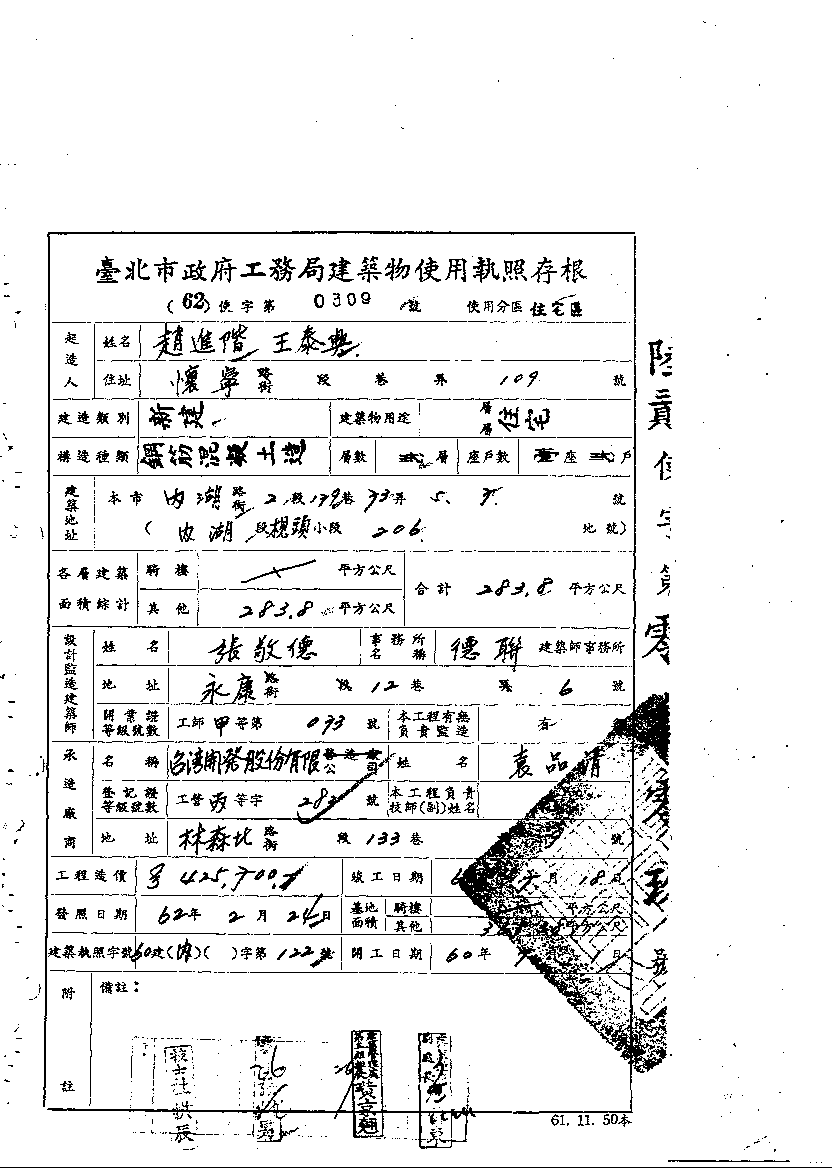 臺北市政府工務局建築物使用執照存根
(62)使字第 0309 號 使用分區 住宅區
起造人 姓名 趙進階 王泰興
住址 懷寧 路街 段 巷 弄 109 號
建造類別 新建 建築物用途 層層 住宅
構造種類 鋼筋混凝土造 層數 弍 層 座戶數 壹 座 弍 戶
建築地址 本市 內湖 路街 2 段 139 巷 33 弄 5. 7. 號
( 內湖 段 梘頭 小段 206 地號)
各層建築面積綜計 騎樓 平方公尺 合計 283.8 平方公尺
其他 283.8 平方公尺
設計監造建築師 姓名 張敬德 事務所名稱 德聯 建築師事務所
地址 永康 路街 段 12 巷 弄 6 號
開業證等級號數 工師 甲 等第 033 號 本工程有無負責監造 有
承造廠商 名稱 台灣開發股份有限 營造廠公司 姓名 袁品清
登記證等級號數 工營 丙 等字 282 號 本工程負責技師(副)姓名
地址 林森北 路街 段 133 巷 號
工程造價 425,700. 竣工日期 月 18 日
發照日期 62 年 2 月 24 日 基地面積 騎樓 平方公尺
其他 平方公尺
建築執照字號 60 建(內)( )字第 122 號 開工日期 60 年 1 日
附註 備註:
61. 11. 50本
陸貳使字第零